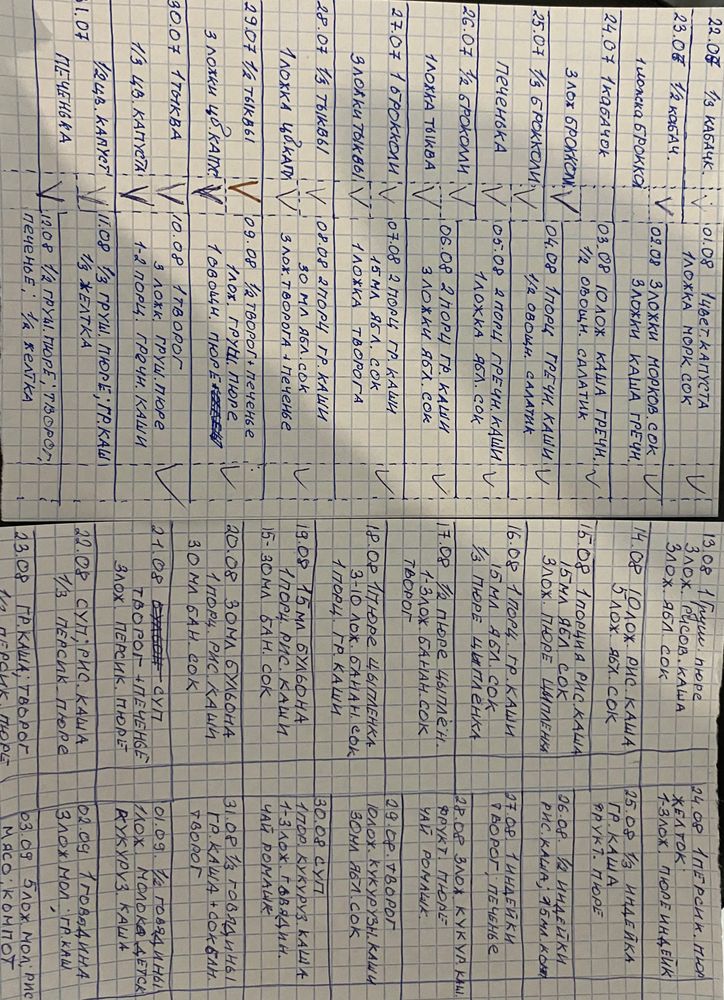 22.07 1/3 КАБАЧК.
23.07 1/2 КАБАЧ.
1 ложка БРОККО
24.07 1 КАБАЧОК
3 лож БРОККОЛ
25.07 1/3 БРОККОЛИ
ПЕЧЕНЬКА
26.07 1/2 БРОКОЛИ
1 ложка ТЫКВА
27.07 1 БРОККОЛИ
3 ложки ТЫКВЫ
28.07 1/3 ТЫКВЫ
1 ложка ЦВ.КАПУ
29.07 1/2 ТЫКВЫ
3 ложки ЦВ.КАПУС
30.07 1 ТЫКВА
1/3 ЦВ. КАПУСТА
31.07
1/2 ЦВ. КАПУСТ
ПЕЧЕНЬКА
01.08 1 ЦВЕТ.КАПУСТА
1 ложка МОРК. СОК
02.08 3 ложки МОРКОВ. СОК
3 ложки КАША ГРЕЧН.
03.08 10 лож КАША ГРЕЧН.
1/2 ОВОЩН. САЛАТИК
04.08 1 порц. ГРЕЧН. КАШИ
1/2 ОВОЩН. САЛАТИК
05.08 2 порц ГРЕЧН. КАШИ
1 ложка ЯБЛ. СОК
06.08 2 порц. ГР КАШИ
3 ложки ЯБЛ. СОК
07.08 2 порц ГР. КАШИ
15 мл ЯБЛ. СОК
1 ложка ТВОРОГА
08.08 2 порц. ГР. КАШИ
30 мл ЯБЛ. СОК
3 лож. ТВОРОГА + ПЕЧЕНЬЕ
09.08 1/2 ТВОРОГ + ПЕЧЕНЬЕ
1 лож. ГРУШ. ПЮРЕ
1 ОВОЩН. ПЮРЕ
10.08 1 ТВОРОГ
3 ложк. ГРУШ. ПЮРЕ
1-2 порц. ГРЕЧН. КАШИ
11.08 1/3 ГРУШ. ПЮРЕ; ГР.КАШ
1/3 ЖЕЛТКА
12.08 1/2 ГРУШ. ПЮРЕ; ТВОРОГ,
ПЕЧЕНЬЕ; 1/2 ЖЕЛТКА
13.08 1 ГРУШ. ПЮРЕ
3 лож. РИСОВ. КАША
3 лож. ЯБЛ СОК
14.08 10 лож РИС. КАША
5 лож ЯБЛ. СОК
15.08 1 ПОРЦИЯ РИС. КАША
15 мл ЯБЛ. СОК
3 лож. ПЮРЕ ЦЫПЛЕНК
16.08 1 порц. ГР. КАШИ
15 мл ЯБЛ. СОК
1/3 ПЮРЕ ЦЫПЛЕНКА
17.08 1/2 ПЮРЕ ЦЫПЛЕН.
1-3 лож. БАНАН. СОК
ТВОРОГ
18.08 1 ПЮРЕ ЦЫПЛЕНКА
3-10 лож. БАНАН. СОК
1 порц. ГР. КАШИ
19.08 15 мл БУЛЬОНА
1 порц. РИС. КАШИ
15-30 мл БАН. СОК
20.08 30 мл БУЛЬОНА
1 порц. РИС. КАШИ
30 мл БАН. СОК
21.08 СУП
ТВОРОГ + ПЕЧЕНЬЕ
3 лож ПЕРСИК. ПЮРЕ
22.08 СУП; РИС. КАША
1/3 ПЕРСИК ПЮРЕ
23.08 ГР.КАША; ТВОРОГ
1/2 ПЕРСИК. ПЮРЕ
24.08 1 ПЕРСИК. ПЮР
ЖЕЛТОК;
1-3 лож. ПЮРЕ ИНДЕЙК
25.08 1/3 ИНДЕЙКА
ГР КАША
ФРУКТ. ПЮРЕ
26.08. 1/2 ИНДЕЙКИ
РИС.КАША;
27.08 1 ИНДЕЙКИ
ТВОРОГ, ПЕЧЕНЬЕ
28.08 3 лож. КУКУР КАШ.
ФРУКТ. ПЮРЕ
ЧАЙ РОМАШК.
29.08. ТВОРОГ
10 лож КУКУРУЗН. КАШИ
30 мл ЯБЛ СОК
30.08 СУП
1 пор. КУКУРУЗ КАША
1-3 лож. ГОВЯДИН.
ЧАЙ РОМАШК
31.08 1/3 ГОВЯДИНЫ
ГР. КАША + СОК БАН.
ТВОРОГ
01.09. 1/2 ГОВЯДИНЫ
1 лож. МОЛОКА ДЕТСК
КУКУРУЗ. КАША
02.09 1 ГОВЯДИНА
3 лож МОЛ; ГР. КАШ
03.09 5 лож МОЛ, РИС
МЯСО; КОМПОТ